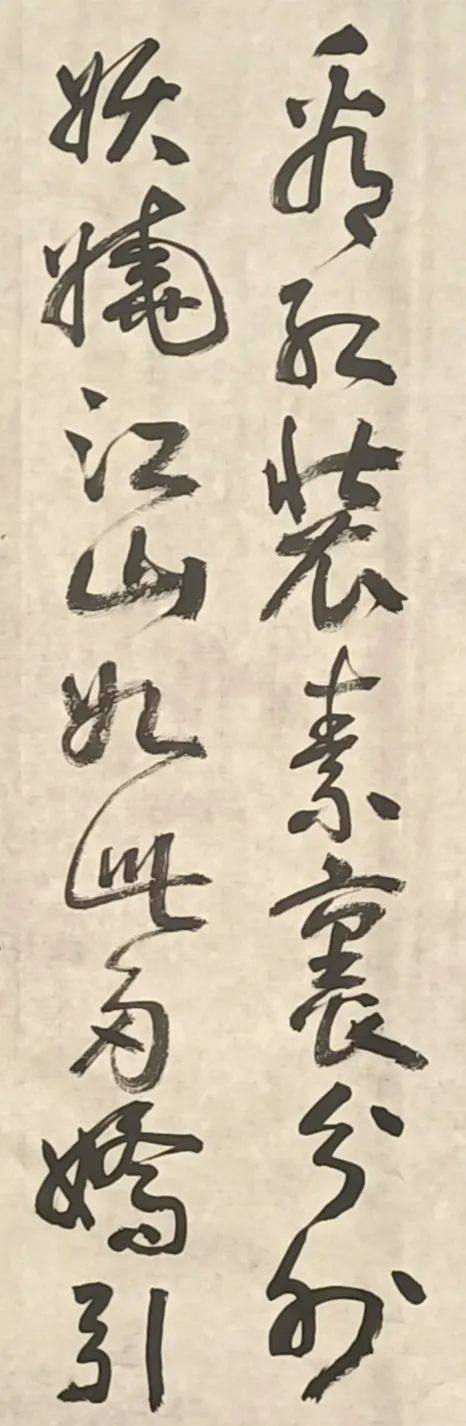 看红装素裹分外
妖娆江山如此多娇引